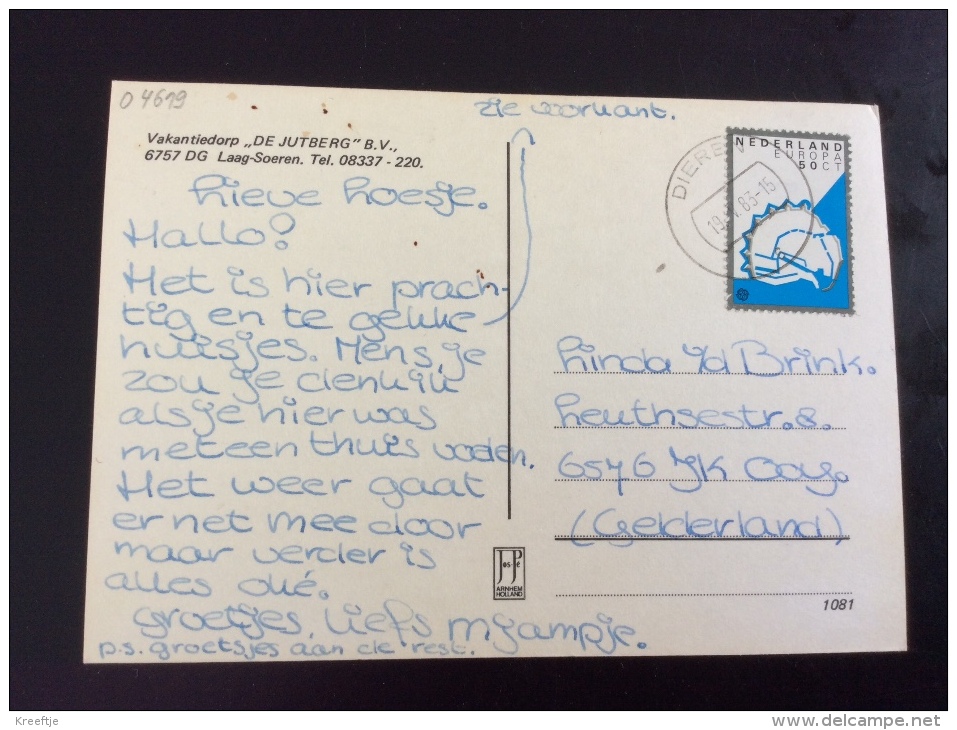 04619
zie voorkant.
Vakantiedorp „DE JUTBERG" B.V.,
6757 DG Laag-Soeren. Tel. 08337 - 220.
NEDERLAND
EUROPA
50CT
DIEREN
83-15
Lieve Loesje.
Hallo!
Het is hier prach-
tig en te gekke
huisjes. Mens, je
zou je denk ik
als je hier was
meteen thuis voelen.
Het weer gaat
er net mee door
maar verder is
alles oké.
Groetjes, Liefs Mjampje.
p.s. groetsjes aan de rest.
Linda v/d Brink.
Leuthsestr. 8.
6576 JK Ooy.
(Gelderland)
Jos-Pé
ARNHEM
HOLLAND
1081
Kreeftje
delcampe.net